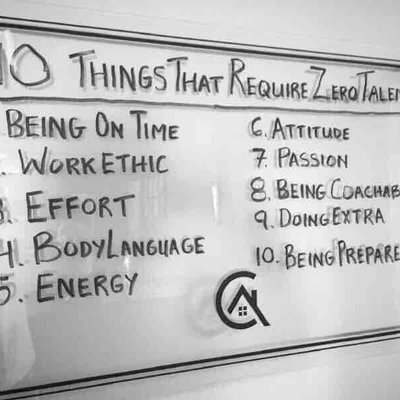 10 THINGS THAT REQUIRE ZERO TALEN
BEING ON TIME
. WORK ETHIC
3. EFFORT
4. BODY LANGUAGE
5. ENERGY
6. ATTITUDE
7. PASSION
8. BEING COACHAB
9. DOING EXTRA
10. BEING PREPARE